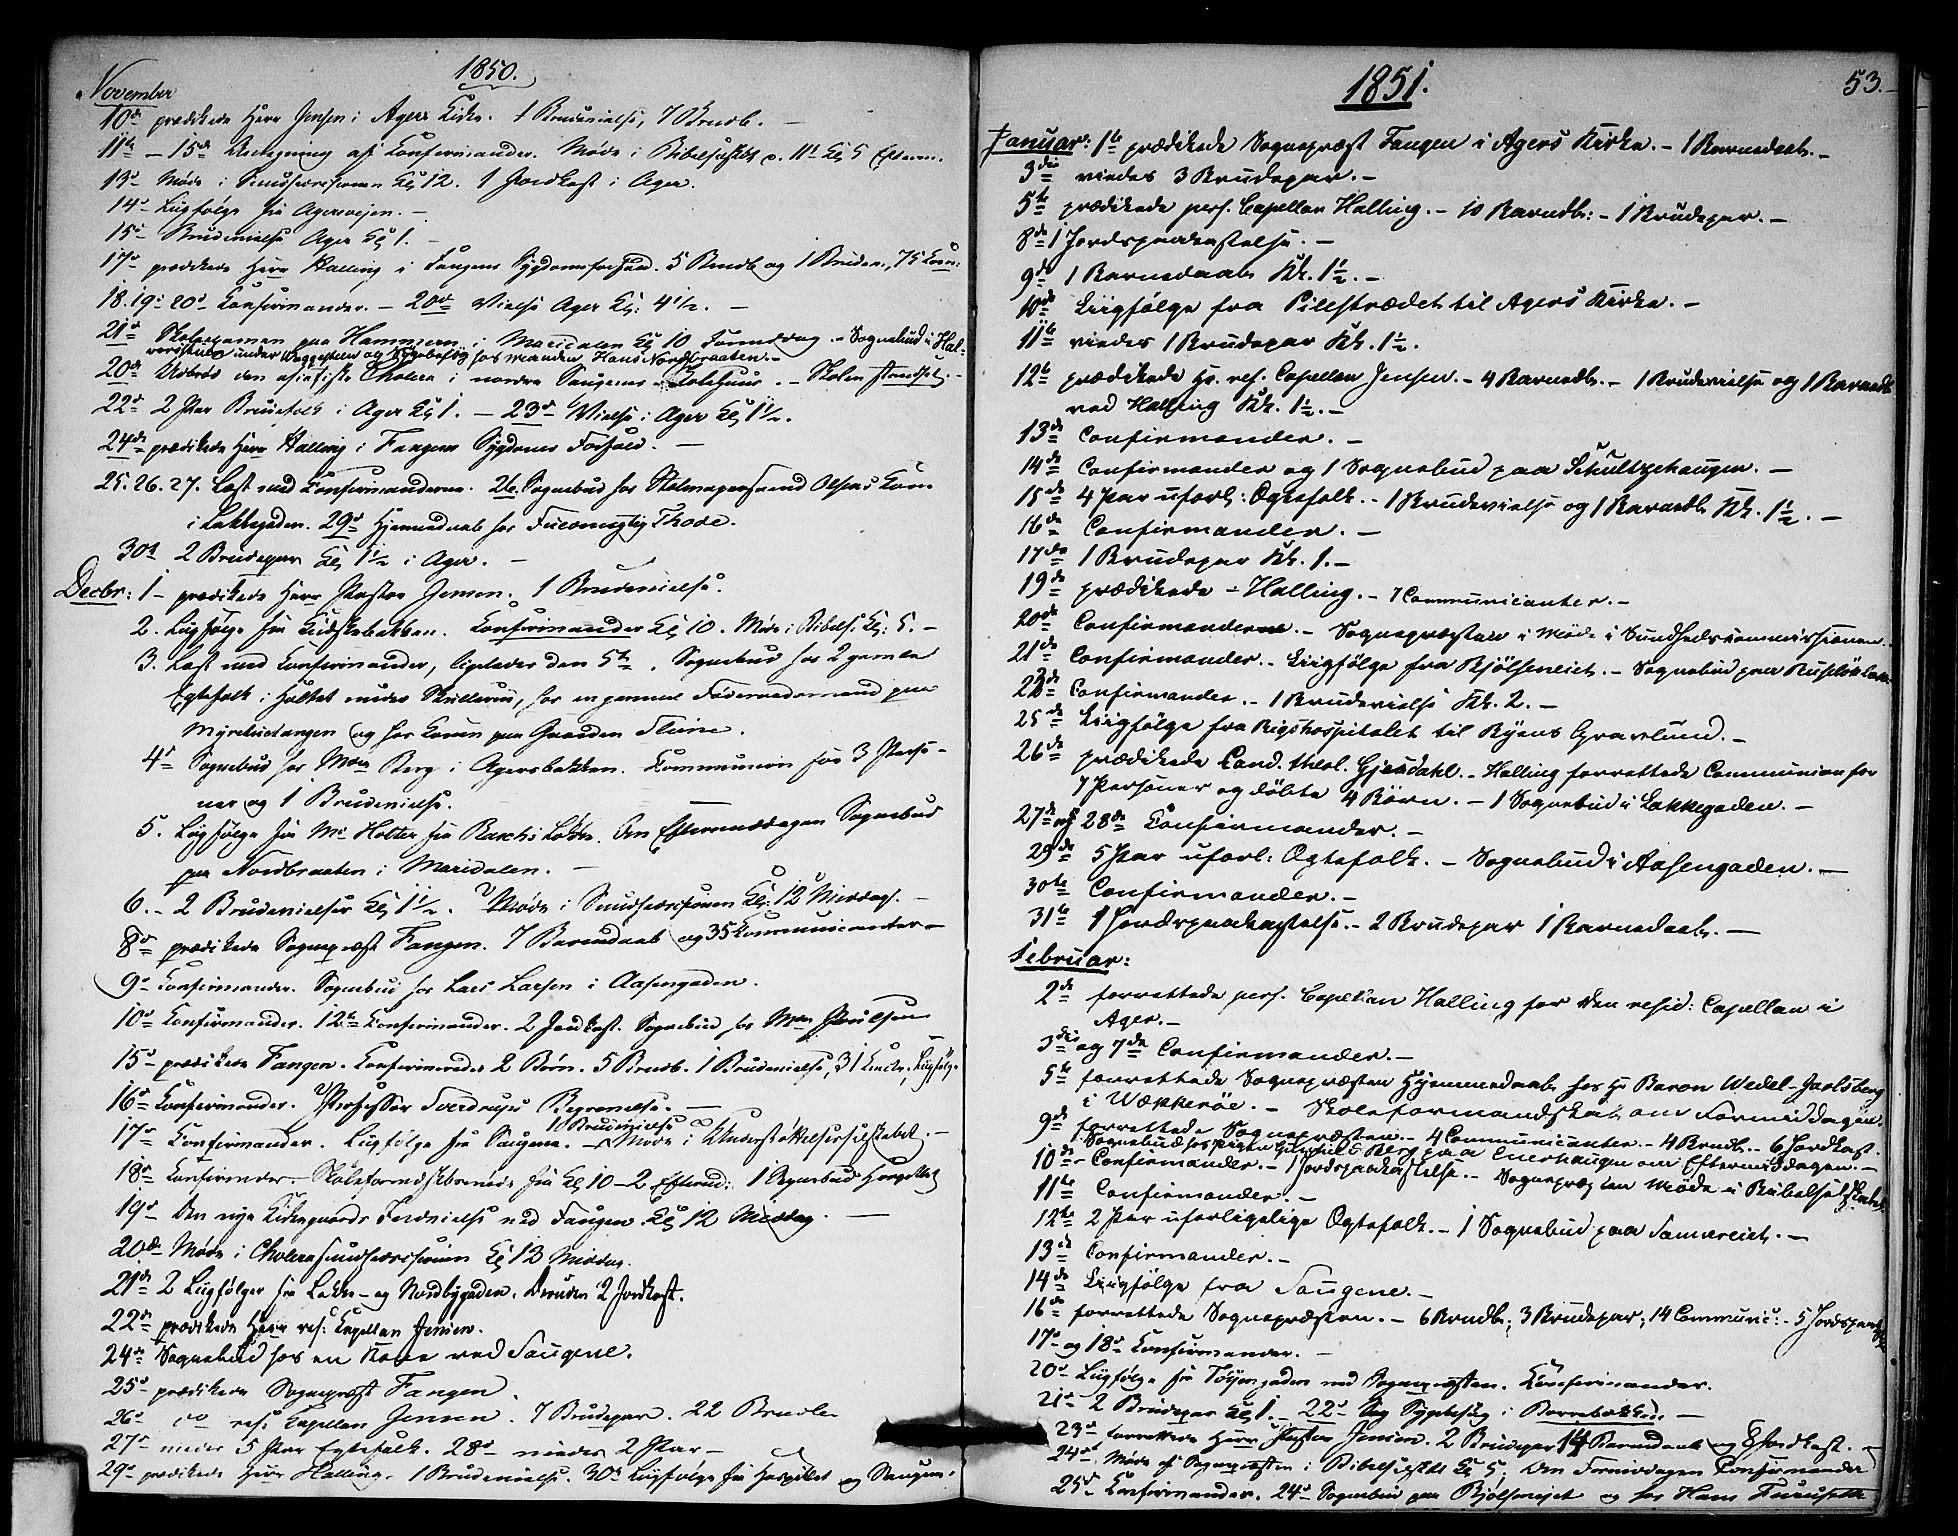 1850.
November
10de prædikede Herr Jensen i Agers Kirke. 1 Brudevielse, 7 Brndb. —
11te – 15de Udvælgning af Confirmander. Møde i Bibelselskab d. 11te Kl 5 Efterm.
13de Møde i Sundhedscommissionen Kl 12. 1 Jordkast i Ager.
14de Liigfølge fra Agersvejen. —
15de Brudevielse Ager Kl 1. —
17de prædikede Herr Halling i Fangens Sygdomsforfald. 5 Brndb og 1 Brudev., 75 Com:
18. 19. 20de Confirmander. — 20de Vielse Ager Kl: 4 1/2. —
21de Skoleexamen paa Hammeren i Maridalen Kl 10 Formiddag. – Sognebud i Hal-
under og Sygebesøg hos manden Hans Nordbraaten. –
20de Udbrød den asiatiske Cholera i nordre Saugenes Skolehuus. – Skolen standset. –
22de 2 Par Brudefolk i Ager Kl 1. — 23de Vielse i Ager Kl 1 1/2.
24de prædikede Herr Halling i Fangens Sygdoms Forfald. —
25. 26. 27. Læst med Confirmanderne. 26. Sognebud hos Olsens Kone
i Lakkegaden. 29de Hjemmedaab hos Thode.
30te 2 Brudepar Kl 1 1/2 i Ager. —
Decbr: 1 – prædikede Herr Pastor Jensen. 1 Brudevielse.
2. Liigfølge fra Kudskebakken. Confirmander Kl 10. Møde i Bibels. Kl: 5. –
3. Læst med Confirmander, ligeledes den 5te. Sognebud hos 2 gamle
Egtefolk i Hultet under Skullerud, hos en gammel Føderaadsmand paa
og hos Konen paa Gaarden
4de Sognebud hos Mad. Berg i Agersbakken. Communion for 3 Perso-
ner og 1 Brudevielse.
5. Liigfølge fra Mr Holter fra Løkke. Om Eftermiddagen Sognebud
paa Nordbraaten i Maridalen. —
6. – 2 Brudevielser Kl 1 1/2. Møde i Sundhedscommissionen Kl: 12 Middags. —
8de prædikede Sognepræst Fangen. 7 Barnedaab og 35 Kommunicanter –
9de Confirmander. Sognebud hos Lars Larsen i Aasengaden.
10de Confirmander. 12te Confirmander. 2 Jordkast. Sognebud hos Mad. Poulsen
15de prædikede Fangen. Confirmerede 2 Børn. 5 Brndb. 1 Brudevielse, 31 Liigfølge
16de Confirmander. Professor Sverdrups Begravelse. —
1 Brudevielse
17de Confirmander. Liigfølge fra Saugene. – Møde i Understøttelsesselskabet. –
18de Confirmander. – Skoleformandskabsmøde fra Kl 10 – 2 Efterm: 1 Sognebud Hospitlet
19de Den nye Kirkegaards Indvielse ved Fangen Kl 12 Middag. —
20de Møde i Cholera Kl 12 Middag.
21de 2 Liigfølger fra Lakke- og Nordbygaden. Desuden 2 Jordkast.
22de prædikede Herr res: Capellan Jensen.
24de Sognebud hos en Kone ved Saugene.
25de prædikede Sognepræst Fangen
26de do res: Capellan Jensen. 7 Brudepar. 22 Brndb
27de viedes 5 Par Egtefolk. 28de viedes 2 Par –
29de prædikede Herr Halling. 1 Brudevielse. 30te Liigfølge fra Hospitlet og Saugene.
1851.
53.
Januar: 1te prædikede Sognepræst Fangen i Agers Kirke. – 1 Barnedaab. –
3die viedes 3 Brudepar. –
5te prædikede pers. Capellan Halling. – 10 Barndb: – 1 Brudepar. –
8de 1 Jordspaakastelse. –
9de 1 Barnedaab Kl. 1 1/2. –
10de Liigfølge fra Pilestrædet til Agers Kirke. –
11te viedes 1 Brudepar Kl. 1 1/2.
12te prædikede Hr. res. Capellan Jensen. – 4 Barndb. – 1 Brudevielse og 1 Barndb
ved Halling Kl. 1 1/2. –
13de Confirmander. –
14de Confirmander og 1 Sognebud paa Schultzehaugen. –
15de 4 Par uforl: Ægtefolk. – 1 Brudevielse og 1 Barndb Kl. 1 1/2. –
16de Confirmander. –
17de 1 Brudepar Kl. 1. –
19de prædikede – Halling. – 7 Communicanter. –
20de Confirmanderne. – Sognepræsten i Møde i Sundhedscommissionen.
21de Confirmander. – Liigfølge fra Bjölseneiet. – Sognebud paa Ruseløkbak:
22de Confirmander. – 1 Brudevielse Kl. 2. –
25de Liigfølge fra Rigshospitalet til Byens Gravlund. –
26de prædikede Cand. theol. Gjesdahl. – Halling forrettede Communion for
7 Personer og døbte 4 Børn. – 1 Sognebud i Lakkegaden. –
27de og 28de Confirmander. –
29de 5 Par uforl: Ægtefolk. – Sognebud i Aasengaden. –
30te Confirmander. –
31te 1 Jordspaakastelse. – 2 Brudepar 1 Barnedaab. —
Februar:
2de forrettede pers. Capellan Halling for den resid: Capellan i
Ager. –
3die og 7de Confirmander. –
5te forrettede Sognepræsten Hjemmedaab hos Hr Baron Wedel-Jarlsberg
i Wækkerøe. – Skoleformandskab om Formiddagen.
9de forrettede Sognepræsten. – 4 Communicanter. – 4 Brndb. – 6 Jordkast.
1 Sognebud hos Pigen Berg paa Enerhaugen om Eftermiddagen. –
10de – Confirmander. – 1 Jordspaakastelse. – Sognepræsten Møde i Bibelselskabet.
11te Confirmander. –
12te 2 Par uforligelige Ægtefolk. – 1 Sognebud paa –
13de Confirmander. –
14de Liigfølge fra Saugene. –
16de forrettede Sognepræsten. – 6 Brndb., 3 Brudepar, 14 Communic: – 5 Jordspaak
17de og 18de Confirmander. –
20de Liigfølge fra Tøyengaden ved Sognepræsten. Confirmander.
21de 2 Brudepar Kl 1. – 22de Sygebesøg i —
23de forrettede Herr Pastor Jensen. 2 Brudepar 14 Barnedaab og 8 Jordkast. –
24de Møde af Sognepræsten i Bibelselskabet Kl 5. Om Formiddagen Confirmander
25de Confirmander. 24de Sognebud paa Bjölseneiet og hos Hans Furuseth